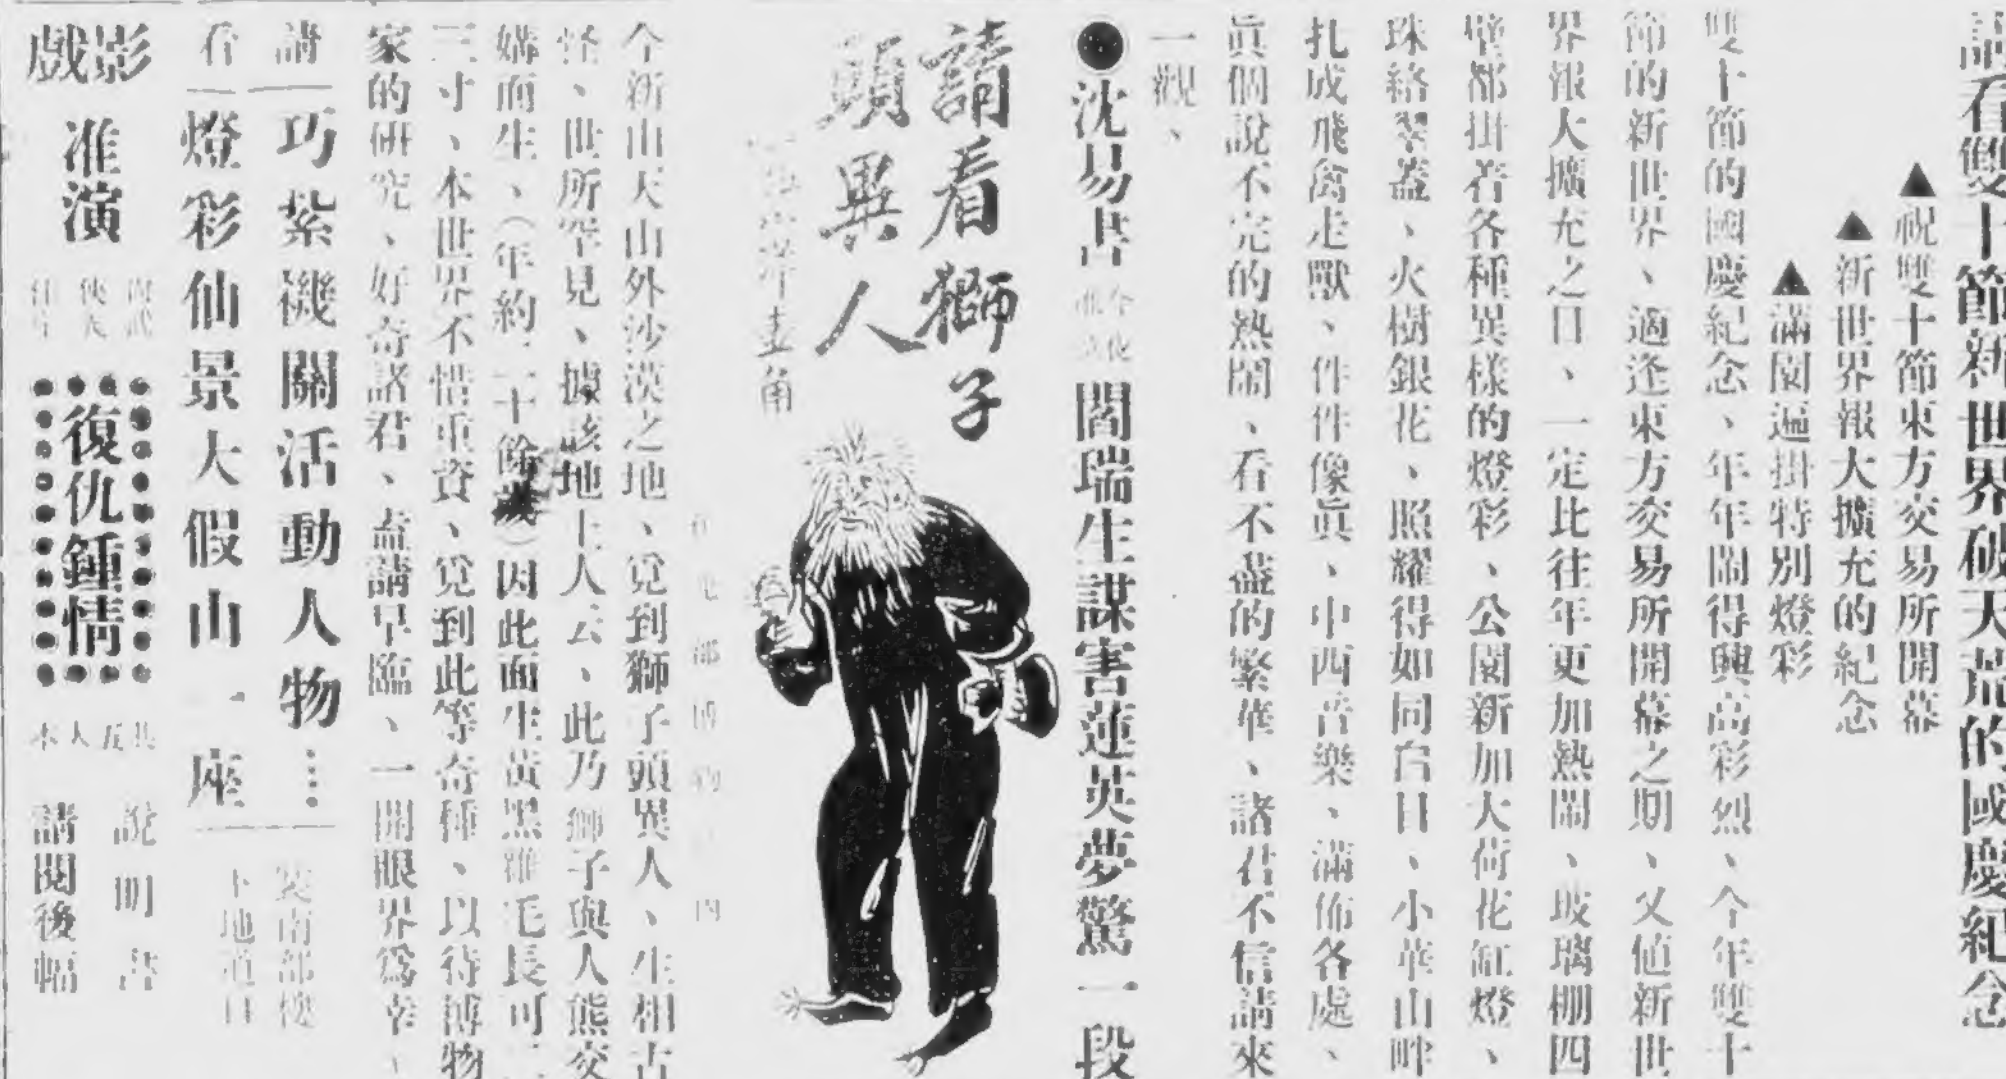 請看雙十節新世界破天荒的國慶紀念
▲祝雙十節東方交易所開幕
▲新世界報大擴充的紀念
▲滿園遍掛特別燈彩
雙十節的國慶紀念、年年鬧得興高彩烈、今年雙十
節的新世界、適逢東方交易所開幕之期、又値新世
界報大擴充之日、一定比往年更加熱鬧、玻璃棚四
壁都掛着各種異樣的燈彩、公園新加大荷花缸燈、
珠絡翠蓋、火樹銀花、照耀得如同白日、小華山畔
扎成飛禽走獸、件件像眞、中西音樂、滿佈各處、
眞個說不完的熱鬧、看不盡的繁華、諸君不信請來
一觀、
●沈易書 今夜 准演 閻瑞生謀害蓮英夢驚一段
請看獅子
頭異人
洋壹角
在北部博物院內
今新由天山外沙漠之地、覓到獅子頭異人、生相古
怪、世所罕見、據該地土人云、此乃獅子與人熊交
媾而生、（年約二十餘歲）因此面生黃黑雜毛長可二
三寸、本世界不惜重資、覓到此等奇種、以待博物
家的研究、好奇諸君、盍請早臨、一開眼界爲幸、
請 巧紮機關活動人物… 裝南部樓
看 燈彩仙景大假山一座 下地道口
影戲 准演 尙武俠大
復仇鍾情
共五大本
說明書
請閱後幅